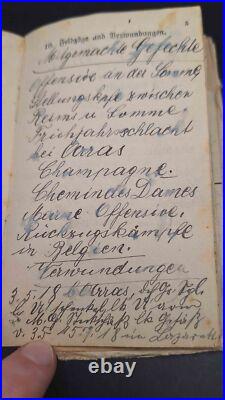 5
10. Feldzüge und Verwundungen.
Mitgemachte Gefechte
Offensive an der Somme,
Stellungskpfe zwischen
Reims u Somme.
Frühjahrschlacht
bei Arras
Champagne.
Chemin des Dames
Marne Offensive.
Rückzugskämpfe
in Belgien.
Verwundungen
3.5.18 b Arras, d.
schenkel lk
lk Gesäß
v. 3.5 18 im Lazarett